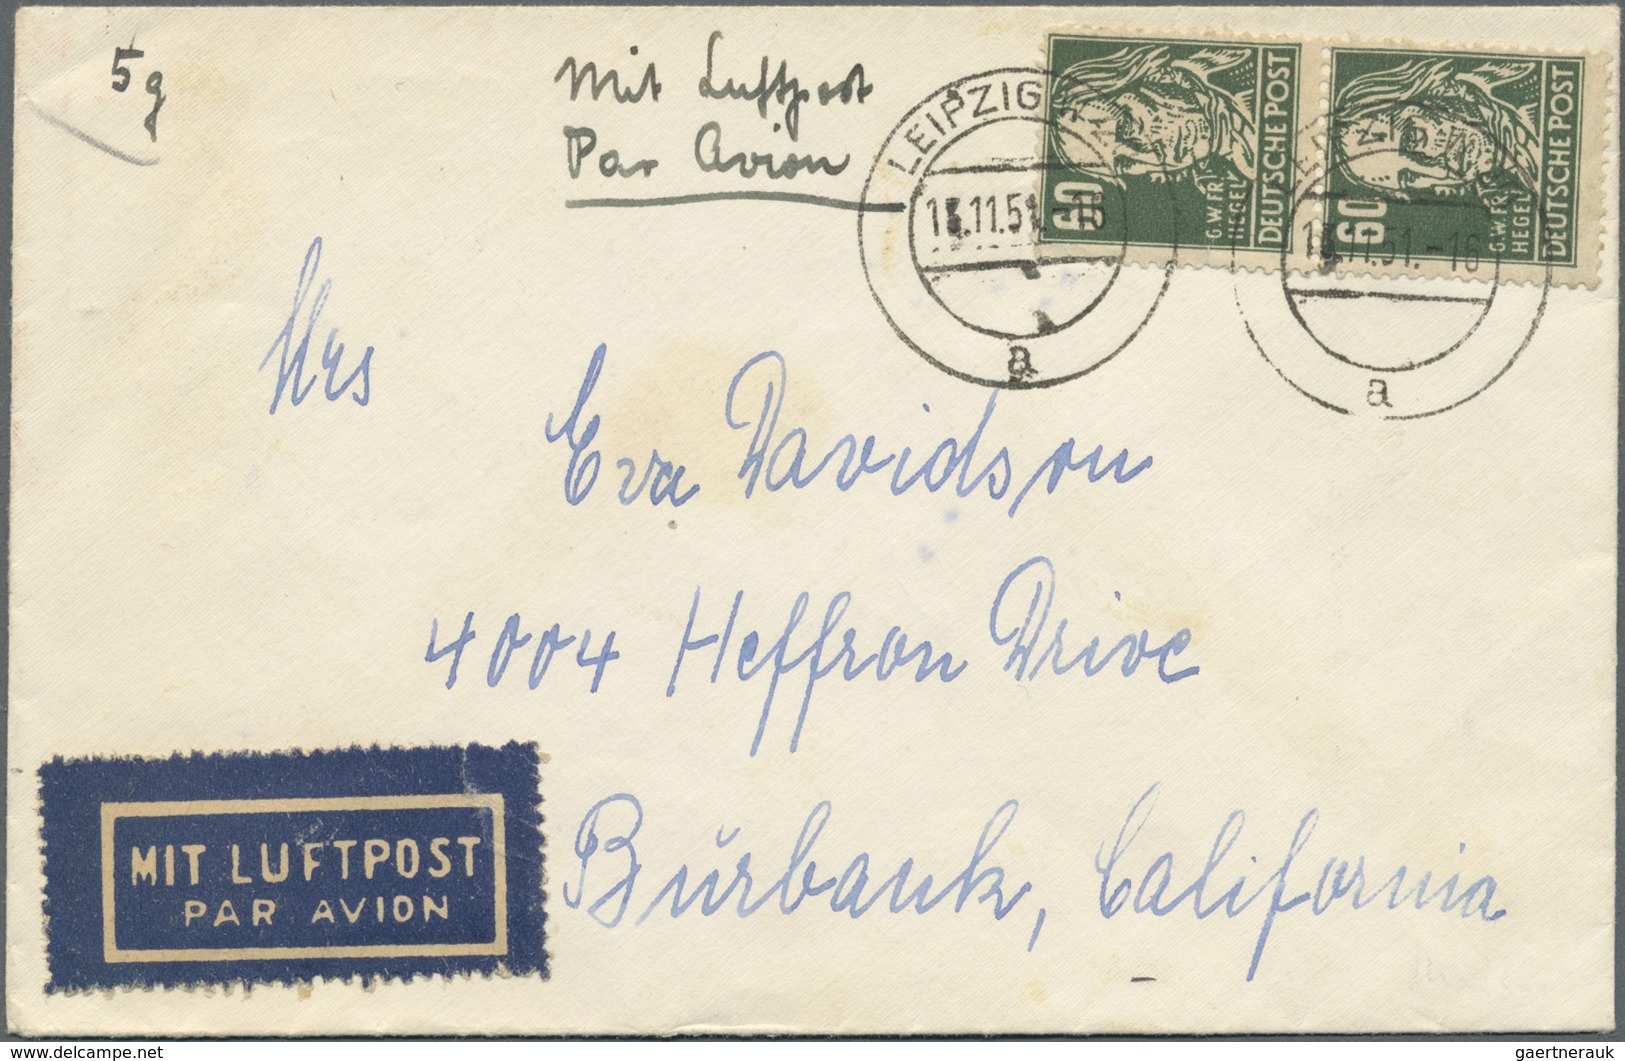 5g
Mit Luftpost
Par Avion
LEIPZIG
13.11.51.-16
a
60
G.W.FR.
HEGEL
DEUTSCHE POST
LEIPZIG
13.11.51.-16
a
60
G.W.FR.
HEGEL
DEUTSCHE POST
Mrs
Eva Davidson
4004 Heffron Drive
Burbank, California
MIT LUFTPOST
PAR AVION
www.delcampe.net
gaertnerauk